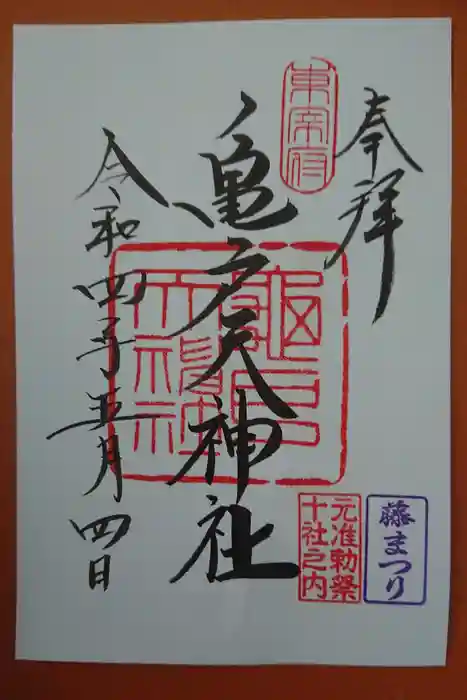 奉拝
東宰府
亀戸天神社
令和四年五月四日
藤まつり
元准勅祭
十社之内